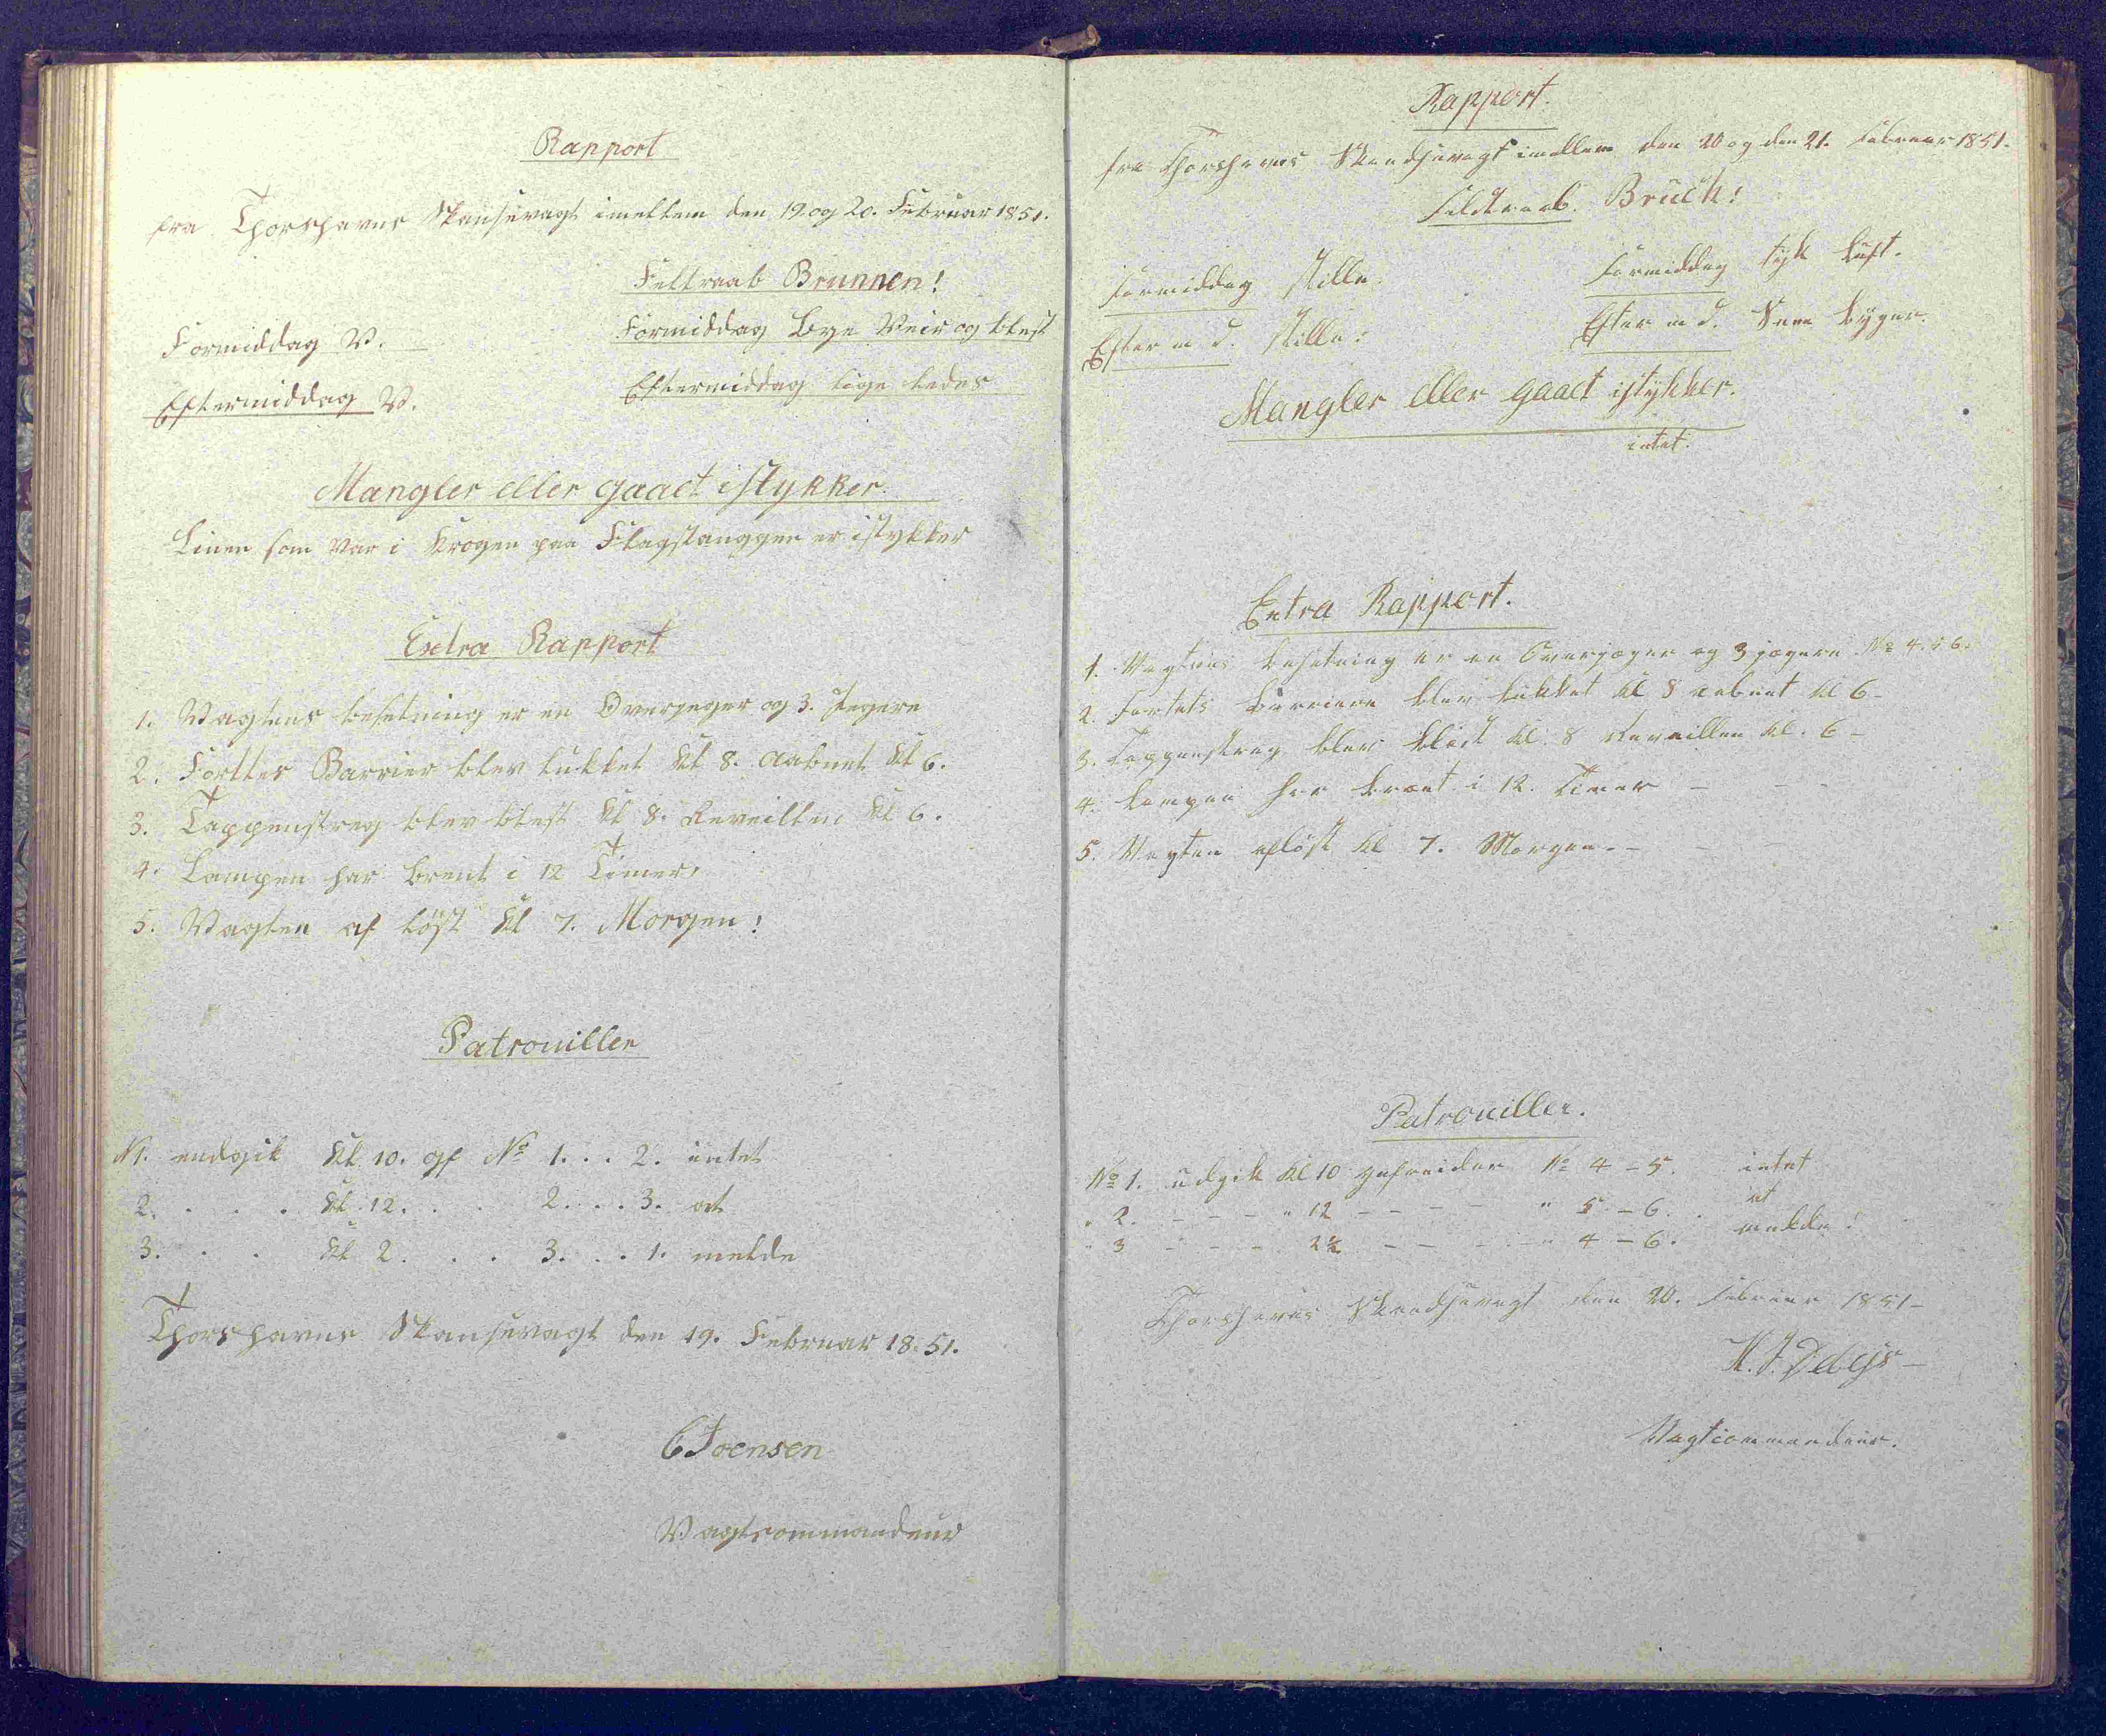 Rapport
fra Thorshavns Skansevagt imellem den 19. og 20. Februar 1851.
Feltraab Brunnen!
Formiddag V. Formiddag Bye Veir og blest
Eftermiddag V. Eftermiddag lige ledes
Mangler eller gaaet istykker.
Linen som var i Krogen paa Flagstanggen er istykker
Extra Rapport
1. Vagtens besetning er en Overjeger og 3. Jegere
2. Forttes Barrier blev lukket Kl 8. aabnet Kl 6.
3. Tappenstreg blev blest Kl 8. Reveillen Kl 6.
4. Lampen har brent i 12 Timer,
5. Vagten af löst Kl 7. Morgen!
Patrouiller
N1. undgik Kl. 10. gf No 1. . . 2. intet
2. . . . Kl. 12. . . 2. . . 3. at
3. . . Kl 2. . . 3. . . 1. melde
Thorshavns Skansevagt den 19. Februar 18.51.
C Joensen
Vagtcommandeur
Rapport.
fra Thorshavns Skandsevagt imellem den 20 og den 21. Februar 1851.
Feldtraab. Bruch!
Formiddag stille. Formiddag tyk Luft.
Efter m d. stille: Efter m d. Snee Byger.
Mangler eller gaaet istykker.
intet.
Extra Rapport.
1. Vagtens besetning er en Overjæger og 3 jægere No 4. 5 6.
2. Fortets Barriere blev lukket kl 8 aabnet kl 6 -
3. Tappenstreg blev blæst kl. 8 Reveillen kl. 6 -
4. Lampen har brænt i 12. Timer - - -
5. Vagten aflöst kl 7. Morgen. - - -
Patrouiller.
No 1. udgik kl 10 gefreider No 4 - 5. intet
" 2. - - - " 12 - - - - " 5 - 6. at
" 3 - - - 2½ - - - - " 4 - 6. melde!
Thorshavns Skandsevagt den 20. Februar 1851 -
Debes -
Vagtcommandeur.